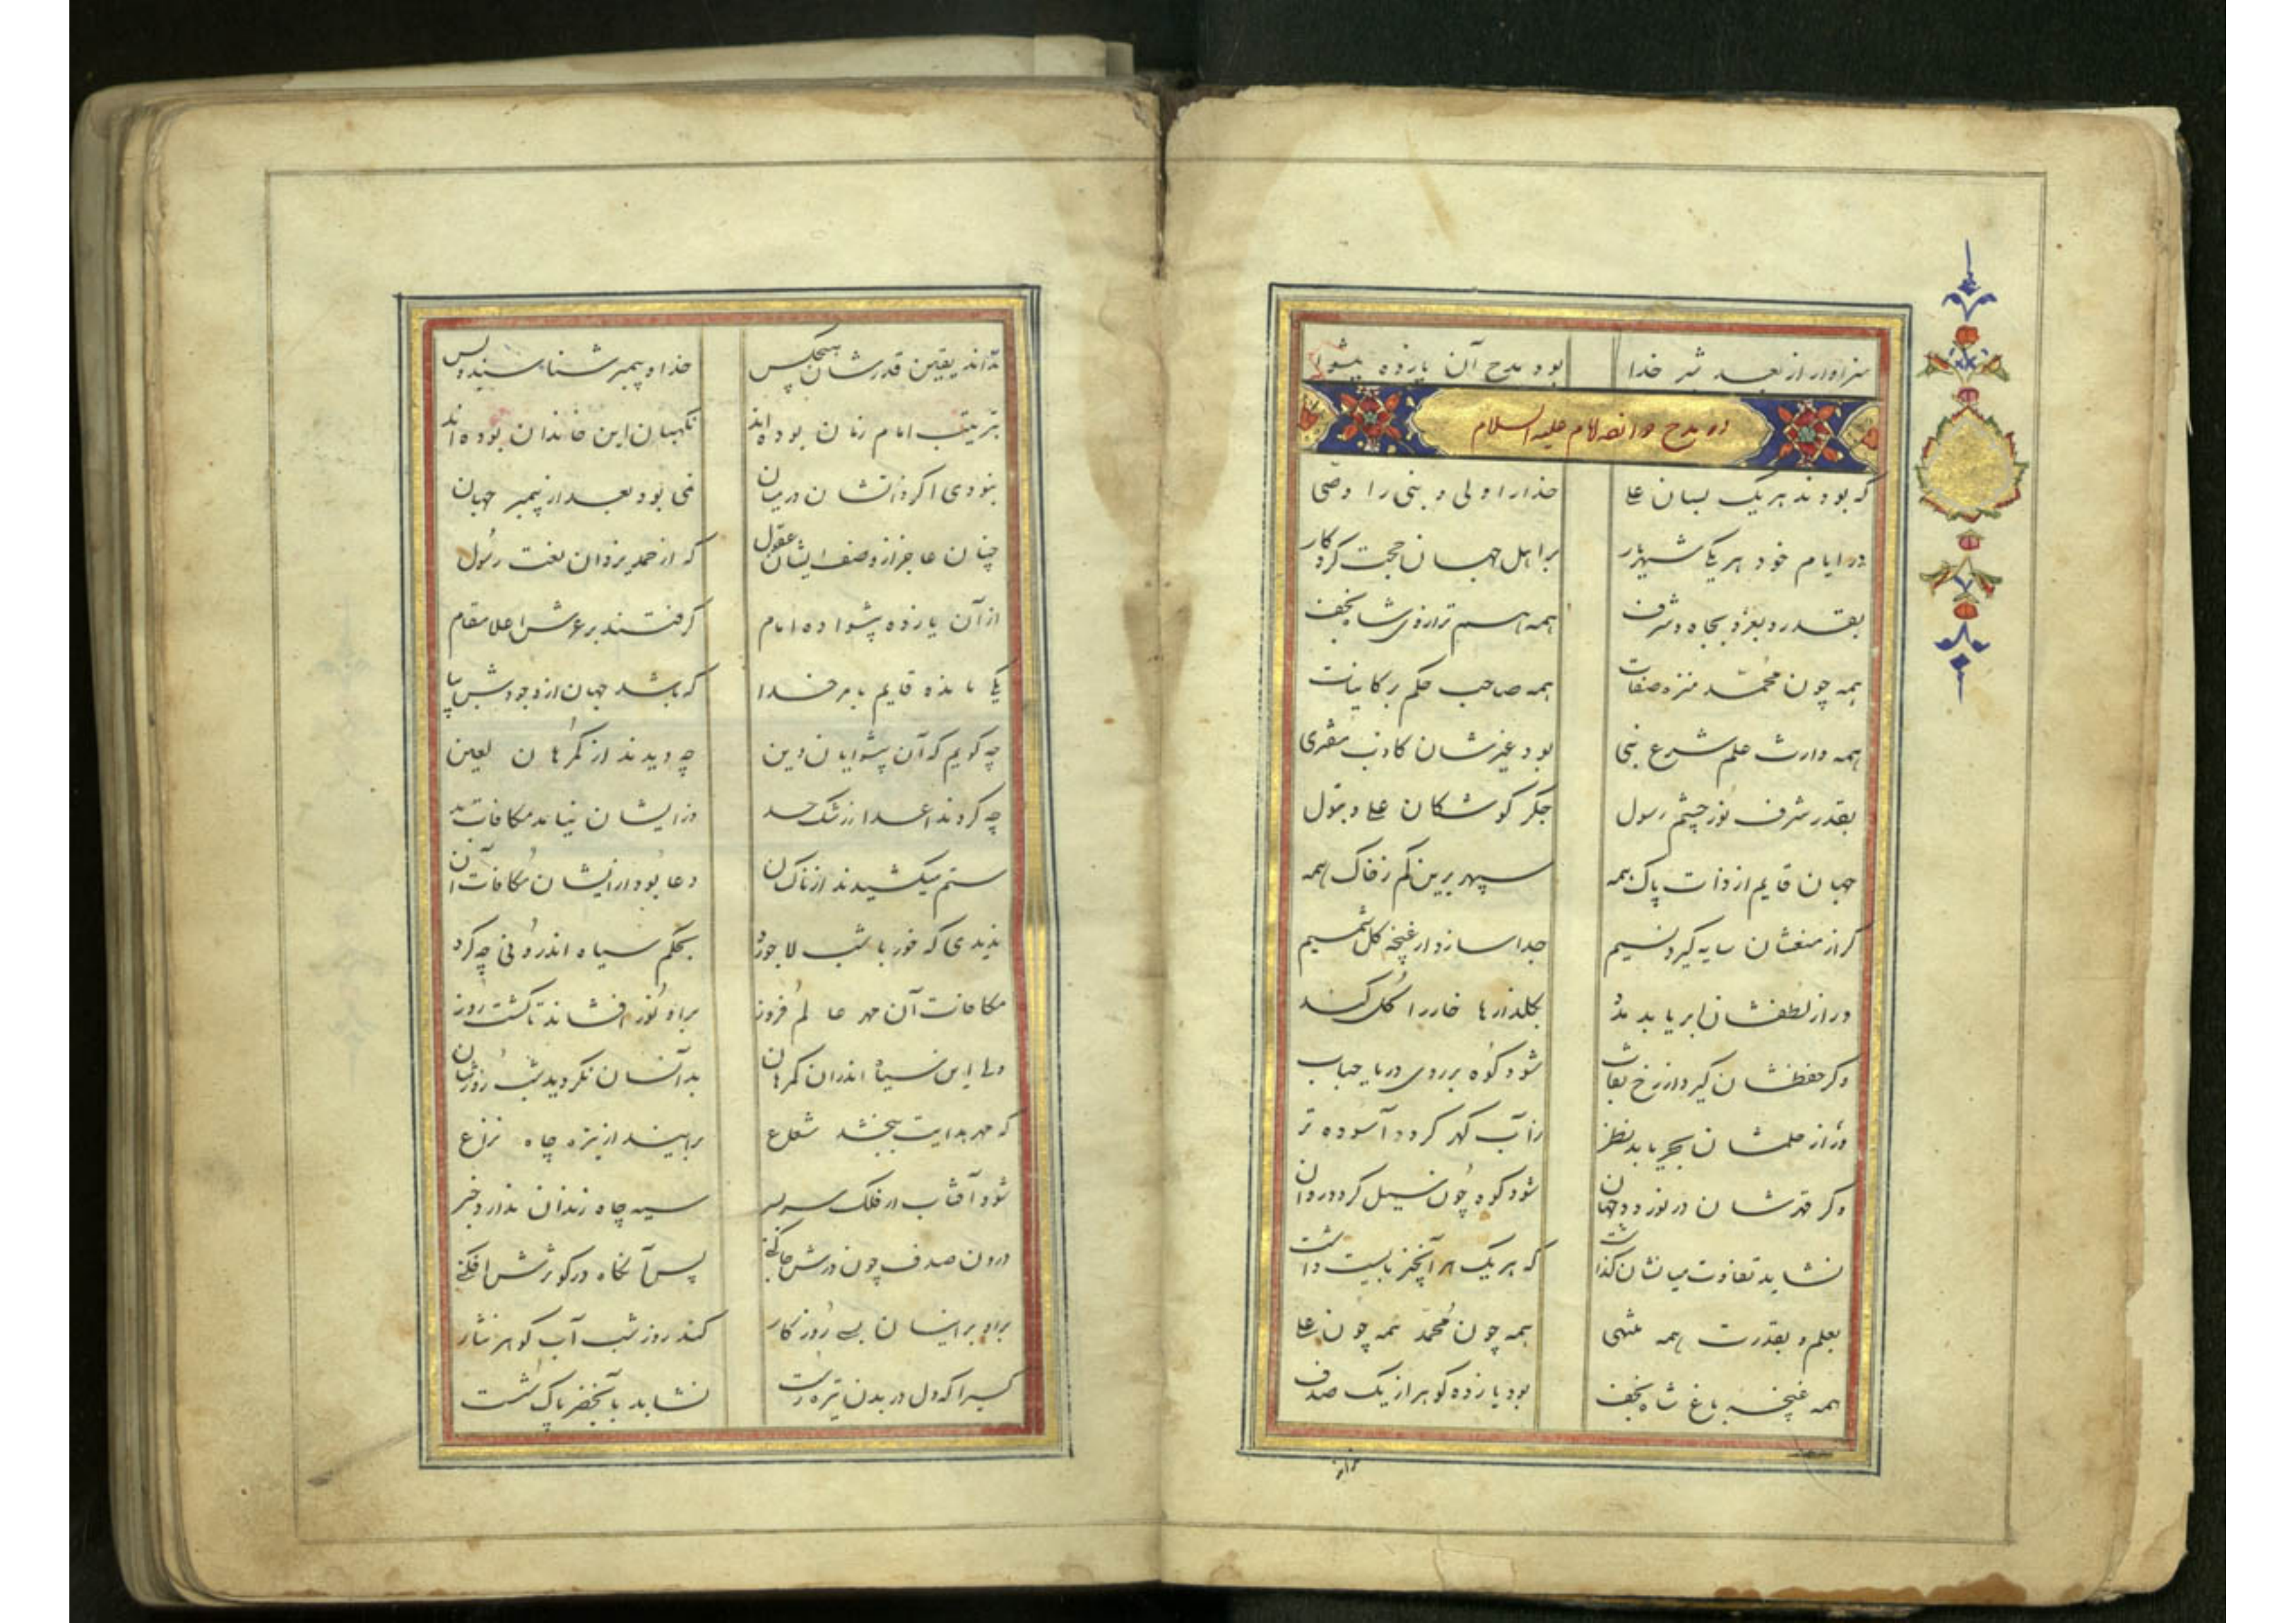 سزاوار از بعد شیر خدا بود مدح آن یازده پیشوا
در مدح دوازده امام علیه السلام
که بودند هر یک بسان علی خدا را ولی و نبی را وصی
در ایام خود هر یکی شهریار بر اهل جهان حجت کردگار
بقدر و بعز و بجاه و شرف همه هم ترازوی شاه نجف
همه چون محمد منزه صفات همه صاحب حکم بر کاینات
همه وارث علم شرع نبی بود غیرشان کاذب مفتری
بقدر شرف نور چشم رسول جگر گوشکان علی و بتول
جهان قایم از ذات پاک همه سپهر برین کم ز خاک همه
کر از منعشان سایه کیرد نسیم جدا سازد از غنچه کل شمیم
ور از لطفشان ابر یابد مدد بکلذارها خار را کل کند
وکر حفظشان کیرد از رخ نقاب شود کوه بر روی دریا حباب
ور از حلمشان بحر یابد نظر ز آب کهر کردد آسوده تر
وکر قهرشان در نوردد جهان شود کوه چون سیل کردد روان
نشاید تفاوت میانشان کذاشت که هر یک هر آنچیز بایست داشت
بعلم و بقدرت همه منتهی همه چون محمد همه چون علی
همه غنچهٔ باغ شاه نجف بود یازده کوهر از یک صدف
نداند یقین قدرشان هیچکس خدا و پیمبر شناسنده بس
بترتیب امام زمان بوده اند نکهبان این خاندان بوده اند
نبودی اکر ذاتشان در میان نمی بود بعد از پیمبر جهان
چنان عاجز از وصف ایشان عقول که از حمد یزدان نعت رسول
از آن یازده پیشوا ده امام کرفتند بر عرش اعلا مقام
یکی مانده قایم بامر خدا که باشد جهان از وجودش بپا
چه کویم که آن پیشوایان دین چه دیدند از کمرهان لعین
چه کردند اعدا ز رشک حسد وز ایشان نیامد مکافات بد
ستم میکشیدند از ناکسان دعا بود از ایشان مکافات آن
ندیدی که خور با شب لاجورد بحکم سیاه اندرونی چه کرد
مکافات آن مهر عالم فروز براو نور افشاند تا کشت روز
ولی این سیاه اندران کمرهان بدانسان نکردید شب روزشان
که مهر هدایت ببخشد شعاع برایند از تیره چاه نزاع
شود آفتاب ار فلک سربسر سیه چاه زندان ندارد خبر
درون صدف چون درش جا کنی پس آنکاه در کوثرش افکنی
براو بر اینسان بسی روزکار کند روز شب آب کوهر نثار
کسیرا که دل در بدن تیره است نشاید بآبخضر پاک شست